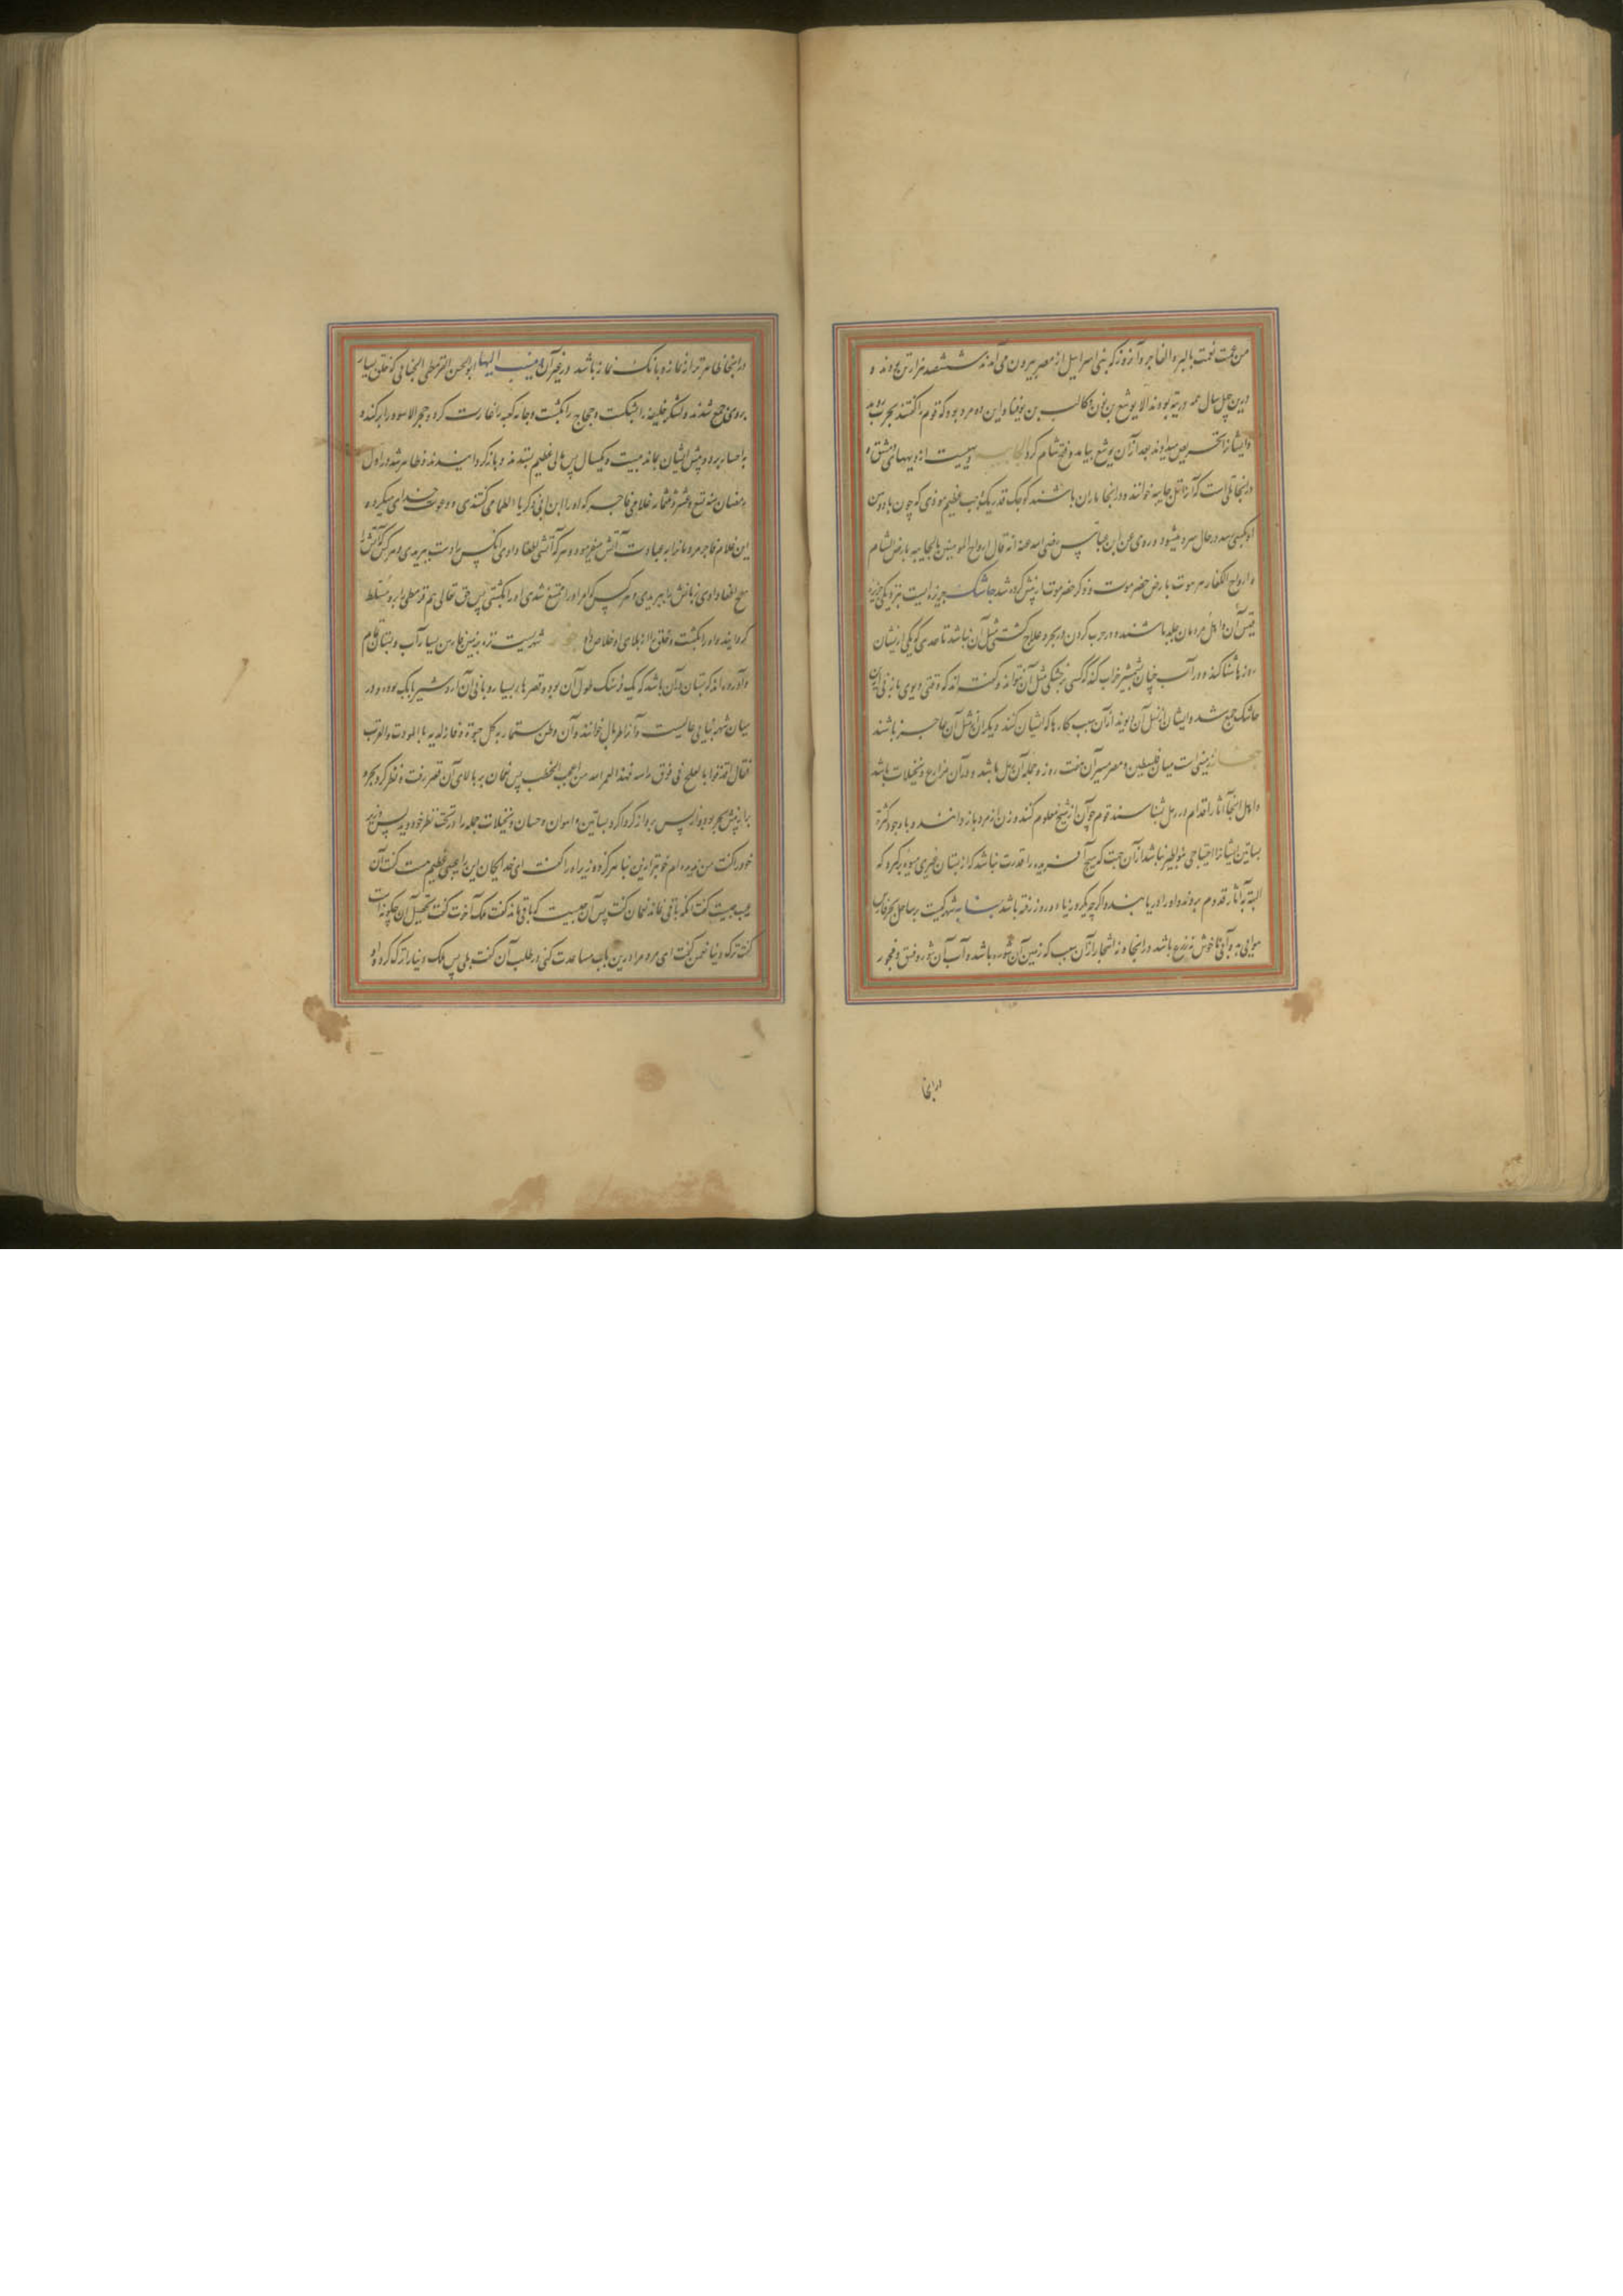 من عمت نعمت بالبر و الفاجر و آنروز که بنی اسرائیل از مصر بیرون می آمدند ششصد هزار تن بودند و
درین چهل سال همه در تیه بودند الا یوشع بن نون و کالب بن یوفنا و این دو مرد بود که قوم را گفتند بحرب
و ایشانرا تحریص میدادند بعد از آن یوشع بیامد و فتح شام کرد الجابیه دیهیست از دیهای دمشق و
در آنجا تلی است که آنرا تل جابیه خوانند و در آنجا ماران باشند کوچک قدر یک وجب عظیم موذی که چون
کسی رسد در حال سرد میشود و روی عن ابن عباس رضی الله عنه انه قال ارواح المومنین بالجابیه بارض الشام
و ارواح الکفار ببرهوت بارض حضرموت و ذکر حضرموت از پیش کرده شد جاشک جزیره ایست بنزدیکی جزیره
قیس آن و اهل مردمان جلد باشند و در حرب کردن در بحر و علاج کشتی مثل آن نباشد تا حدی که یکی از ایشان
روزها شنا کند و در آب چنان شمشیر ضراب کند که کسی در خشکی مثل آن نتواند و گفته اند که وقتی
جاشک جمع شد و ایشان از نسل آن بودند از آن سبب کارها که ایشان کنند دیگران از مثل آن عاجز باشند
جفار زمینی ست میان فلسطین و مصر مسیر آن هفت روزه و جمله آن رمل باشد و در آن مزارع و نخیلات باشد
و اهل آنجا آثار اقدام در رمل بشناسند قوم جوان از شیخ معلوم کنند و زن از مرد باز دانند و با وجود کثرت
بساتین ایشانرا احتیاجی بنواطیر نباشد از آن جهت که هیچ آفریده را قدرت نباشد که از بستان غیری میوه برگیرد که
البته آثار قدوم بروند و او را دریابند و اگر چه یکروز یا دو روز رفته باشد جنابه شهرکیست بر ساحل بحر فارس
هوایی بد و آبی ناخوش نه زرع باشد در آنجا و نه اشجار از آن سبب که زمین آن شوره باشد و آب آن شور و فسق و فجور
در آنجا
در آنجا ظاهرتر از نماز و بانک نماز باشد و غیر آن و ینسب الیها ابو الحسن القرمطی الجنابی که خلق بسیار
بر وی جمع شدند و لشکر خلیفه را بشکست و حجاج را بکشت و جامه کعبه را غارت کرد و حجر الاسود را برکنده
باحسا برد و پیش ایشان بماند بیست و یکسال پس مالی عظیم بستدند و بازگردانیدند و ظاهر شد در اول
رمضان سنه تسع و عشر و ثلثمائه غلامی فاجر که او را ابن ابی زکریا الطمامی گفتندی و دعوت خدایی میکرد و
این غلام فاجر مردمانرا به عبادت آتش میفرمود و هر که آتشی اطفا دادی آنکس را دست ببریدی و هر که آتش را
بنفخ اطفا دادی زبانش را ببریدی و هر پسر که امر او را ممتنع شدی او را بکشتی پس حق تعالی هم قرمطی را برو مسلط
گردانید و او را بکشت و خلق را از بلای او خلاص داد جور شهریست نزه بزمین فارس بسیار آب و بستان
و آورده اند که بستان در آن باشد که یک فرسنک طول آن بود و قصرهاء بسیار و بانی آن اردشیر بابک بوده و در
میان شهر بنایی عالیست و آنرا طربال خوانند
فقال قذفوا بالعلج فی فوق راسه فهذا لعمر الله من اعجب الخطب پس نعمان بر بالای آن قصر رفت و نظر کرد بحر
برابر پیش بحر بود و از پس بر و از گرداگرد بساتین و انهار و حیتان و نخیلات جمله را در تحت نظر خود دید پس وزیر
خود را گفت من ندیده ام خوبتر ازین بنا هرگز و وزیر او را گفت ای خدایگان این را عیبی عظیم هست گفت آن
عیب چیست گفت آنکه باقی نماند نعمان گفت پس آن چیست که باقی ماند گفت ملک آخرت گفت تحصیل آن چگونه است
گفت ترک دنیا نعمن گفت ای مرد مرا درین باب مساعدت کنی در طلب آن گفت بلی پس ملک دنیا را ترک کرد و